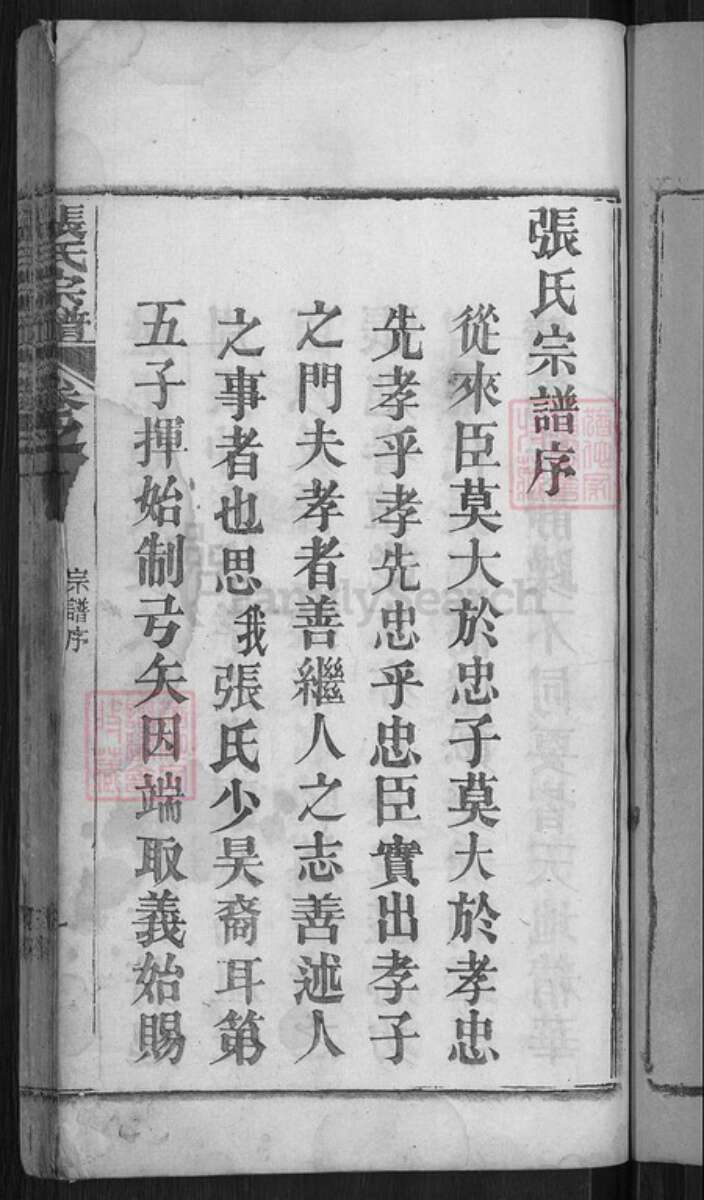 張氏宗譜序
從來臣莫大於忠子莫大於孝忠
先孝乎孝先忠乎忠臣實出孝子
之門夫孝者善繼人之志善述人
之事者也思我張氏少昊裔耳第
五子揮始制弓矢因端取義始賜
宗譜序
張氏宗譜
卷之
FamilySearch